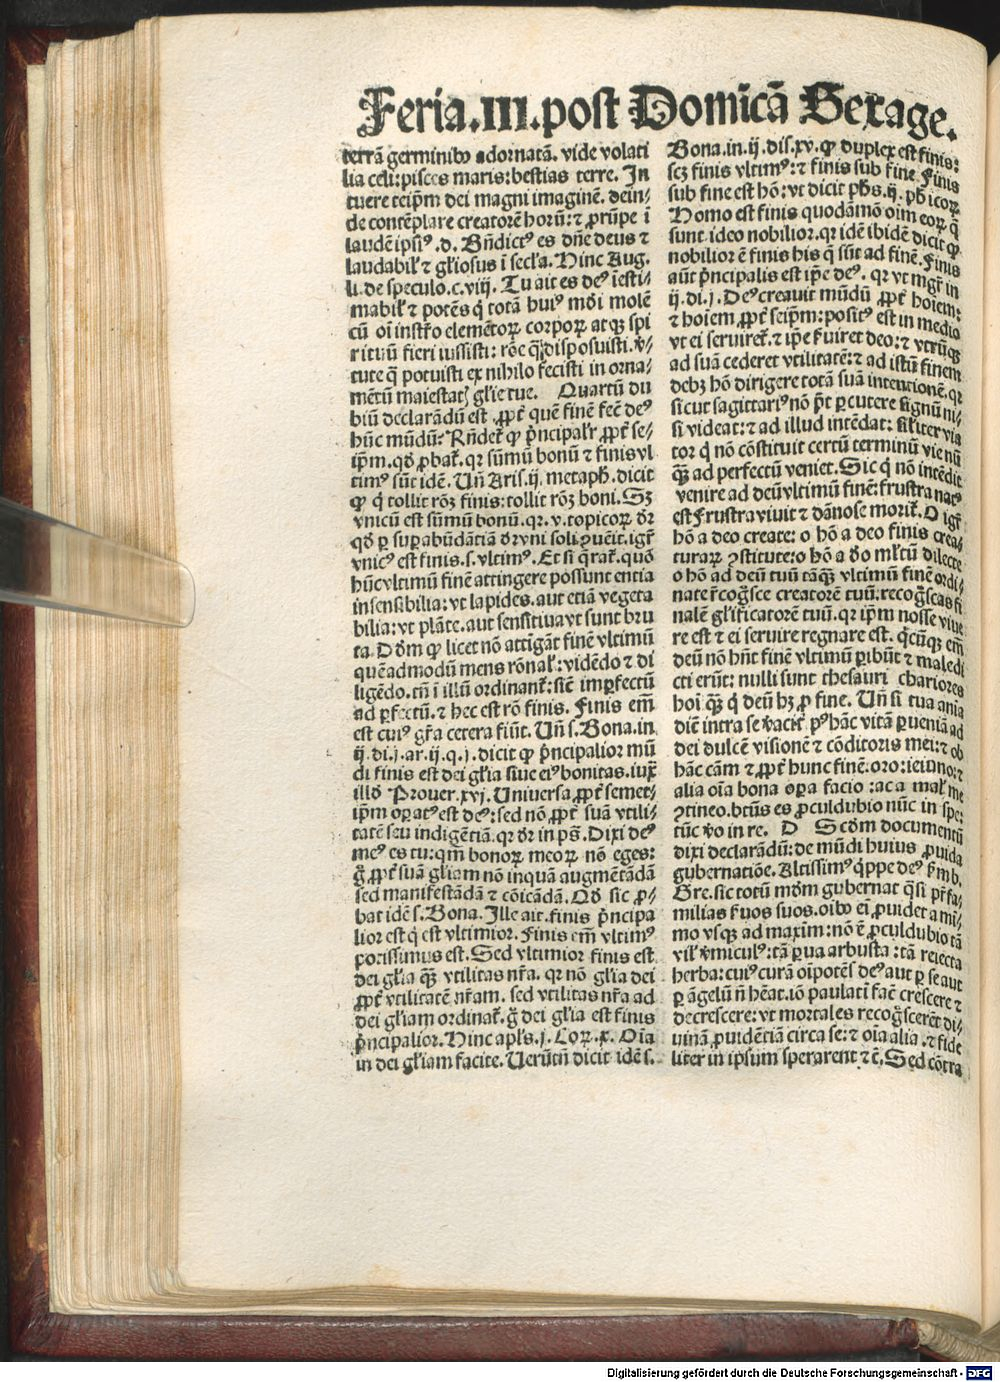 Feria.III.post Domīcā Sexage.
terrā germinibꝰ adornatā. vide volati
lia celi: pisces maris: bestias terre. In
tuere teip̄m dei magni imaginē. dein⸗
de contēplare creatorē horū: ⁊ prūpe ī
laudē ipsiꝰ .d. Bn̄dictꝰ es dn̄e deus ⁊
laudabił ⁊ gl̄iosus ī secl̄a. Hinc Aug.
li. de speculo.c.viij. Tu ait es deꝰ īesti⸗
mabił ⁊ potēs q̇ totā huiꝰ mūdi molē
cū oī instr̄o elemētoꝝ corpoꝝ atqꝫ spi
rituū fieri iussisti: rōe q̄ disposuisti. v̄⸗
tute q̄ potuisti ex nihilo fecisti in orna⸗
mētū maiestatꝭ gl̄ie tue. Quartū du
biū declarādū est ꝓpt̄ quē finē fec̄ deꝰ
hūc mūdū: Rn̄det᷑ ꝙ p̄ncipalr̄ ꝓpt̄ se⸗
ip̄m. qd̄ ꝓbat᷑. qꝛ sūmū bonū ⁊ finis vl
timꝰ sūt idē. Un̄ Aris.ij. metaph̄. dicit
ꝙ q̇ tollit rōꝫ finis: tollit rōꝫ boni. Sꝫ
vnicū est sūmū bonū. qꝛ. v. topicoꝝ dr̄
qd̄ ꝑ suꝑabūdātiā dr̄ vni soli ꝯuēit. igr̄
vnicꝰ est finis.s.vltimꝰ. Et si q̄rat᷑. quō
hūc vltimū finē attingere possunt entia
insensibilia: vt lapides. aut etiā vegeta
bilia: vt plāte. aut sensitiua vt sunt bru
ta. Dōm ꝙ licet nō attigāt finē vltimū
quēadmodū mens rōnał: vidēdo ⁊ di
ligēdo. tn̄ ī illū ordinant᷑: sic̄ imꝑfectū
ad ꝑfectū. ⁊ hec est rō finis. Finis em̄
est cuiꝰ gr̄a cetera fiūt. Un̄ s. Bona. in
ij. di.j.ar.ij.q.j. dicit ꝙ p̄ncipalior mū
di finis est dei gl̄ia siue eiꝰ bonitas. iux̄
illd̄ Prouer.xvj. Uniuersa ꝓpt̄ semet⸗
ip̄m oꝑatꝰ est deꝰ: sed nō ꝓpt̄ suā vtili⸗
tatē seu indigētiā. qꝛ dr̄ in ps̄. Dixi deꝰ
meꝰ es tu: qm̄ bonoꝝ meoꝝ nō eges:
g̊ ꝓpt̄ suā gl̄iam nō inquā augmētādā
sed manifestādā ⁊ cōicādā. Qd̄ sic ꝓ⸗
bat idē s. Bona. Ille ait. finis p̄ncipa
lior est q̇ est vltimior. Finis em̄ vltimꝰ
potissimus est. Sed vltimior finis est
dei gl̄ia q̄ꝫ vtilitas nr̄a. qꝛ nō gl̄ia dei
ꝓpt̄ vtilitatē nr̄am. sed vtilitas nr̄a ad
dei gl̄iam ordinat᷑. g̊ dei gl̄ia est finis
p̄ncipalior. Hinc apl̄s.j. Coꝝ.x. Oīa
in dei gl̄iam facite. Uerūtn̄ dicit idē s.
Bona.in.ij.dis.xv.ꝙ duplex est finis:
scꝫ finis vltimꝰ: ⁊ finis sub fine. Finis
sub fine est hō: vt dicit ph̄s.ij. ph̄icoꝝ
Homo est finis quodāmō oīm eoꝝ q̄
sunt. ideo nobilior. qꝛ idē ibidē dicit ꝙ
nobilior ē finis his q̄ sūt ad finē. Finis
aūt p̄ncipalis est ip̄e deꝰ. qꝛ vt mgr̄ in
ij. di.j. Deꝰ creauit mūdū ꝓpt̄ hoīem:
⁊ hoīem ꝓpt̄ seip̄m: positꝰ est in medio
vt ei seruiret᷑. ⁊ ip̄e ẜuiret deo: ⁊ vtrūqꝫ
ad suā cederet vtilitatē: ⁊ ad istū finem
debꝫ hō dirigere totā suā intentionē. qꝛ
sicut sagittariꝰ nō p̄t ꝑcutere signū ni⸗
si videat: ⁊ ad illud intēdat: siłiter via
tor q̇ nō cōstituit certū terminū vie nū
q̄ꝫ ad perfectū veniet. Sic q̇ nō intēdit
venire ad deū vltimū finē: frustra natꝰ
est frustra viuit ⁊ dānose morit᷑. O igr̄
hō a deo create: o hō a deo finis crea⸗
turaꝝ ꝯstitute: o hō a dō ml̄tū dilecte
o hō ad deū tuū tāqꝫ vltimū finē ordi⸗
nate r̄cog̊sce creatorē tuū. recog̊scas fi
nalē gl̄ificatorē tuū. qꝛ ip̄m nosse viue
re est ⁊ ei seruire regnare est. q̇cūqꝫ em̄
deū nō hn̄t finē vltimū ꝑibūt ⁊ maledi
cti erūt: nulli sunt thesauri chariores
hoī q̄ꝫ q̇ deū hꝫ ꝓ fine. Un̄ si tua aīa
diē intra se v̄acit᷑ pꝰ hāc vitā ꝑueniā ad
dei dulcē visionē ⁊ cōditoris mei: ⁊ ob
hāc cām ⁊ ꝓpt̄ hunc finē. oro: ieiūno: ⁊
alia oīa bona oꝑa facio: ac a mał me
ꝯtineo. btūs es ꝓculdubio nūc in spe:
tūc v̄o in re. D Scd̄m documentū
dixi declarādū: de mūdi huius ꝓuida
gubernatiōe. Altissimꝰ q̇ppe deꝰ ẜm b.
Gre. sic totū mōm gubernat q̄si pr̄fa⸗
milias ẜuos suos. oībꝰ eī ꝓuidet a mī⸗
mo vsqꝫ ad maxim: nō ē ꝓculdubio tā
vił v̄miculꝰ: tā ꝑua arbusta: tā reiecta
herba: cuiꝰ curā oīpotēs deꝰ aut ꝑ se aut
ꝑ āgelū n̄ hēat. iō paulatī fac̄ crescere ⁊
decrescere: vt mortales recog̊scerēt di⸗
uinā ꝓuidētiā circa se: ⁊ oīa alia .⁊ fide
liter in ipsum sperarent ⁊c̄. Sed cōtra
Digitalisierung gefördert durch die Deutsche Forschungsgemeinschaft - DFG